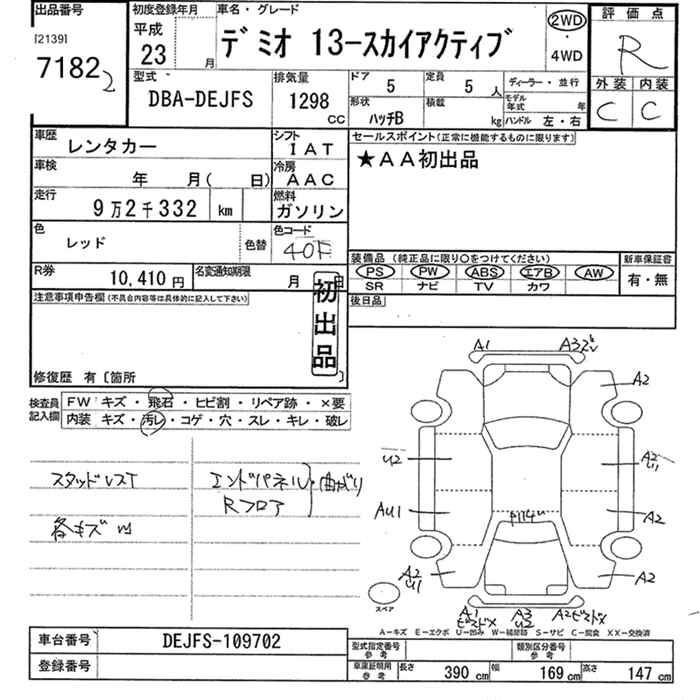 出品番号
[2139]
7182 2
初度登録年月
平成
23 月
車名・グレード
デミオ 13-スカイアクティブ
2WD
・
4WD
評価点
R
外装 内装
C C
型式
DBA-DEJFS
排気量
1298
CC
ドア 5
定員 5 人
形状 ハッチB
積載 kg
ディーラー・並行
モデル年式 年
ハンドル 左・右
車歴 レンタカー
シフト IAT
車検 年 月( 日)
冷房 AAC
走行 9万2千332 km
燃料 ガソリン
色 レッド 色替
色コード 40F
R券 10,410円
名変通知期限 月 日
セールスポイント(正常に機能するものに限ります)
★AA初出品
装備品 (純正品に限り○をつけてください)
PS PW ABS エアB AW
SR ナビ TV カワ
新車保証書
有・無
後日品
注意事項申告欄(不具合内容等は具体的に記入して下さい)
初出品
修復歴 有〔箇所 〕
検査員記入欄
FW キズ・飛石・ヒビ割・リペア跡・×要
内装 キズ・汚レ・コゲ・穴・スレ・キレ・破レ
エンドパネル・曲がり
Rフロア
各キズ
A1
A2
A2
U2
A2
U1
AU1
A2
A2
U1
A2
A1
A3
U2
スペア
A-キズ E-エクボ U-凹み W-補修跡 S-サビ C-腐食 XX-交換済
車台番号 DEJFS-109702
登録番号
型式指定番号
参考
類別区分番号
参考
車庫証明用
参考
長さ 390 cm 幅 169 cm 高さ 147 cm